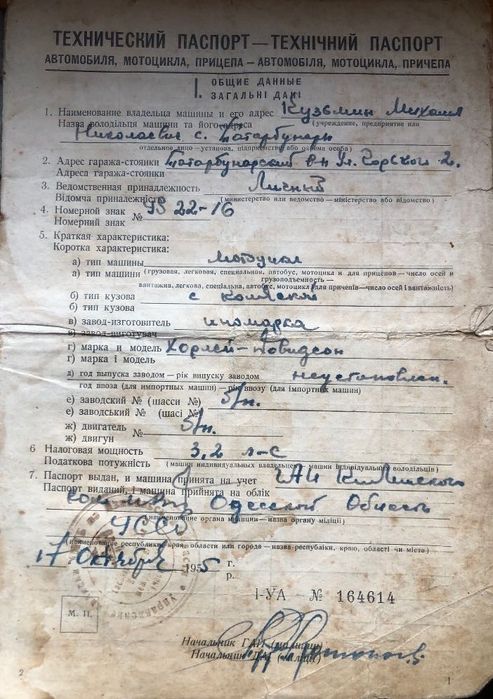 ТЕХНИЧЕСКИЙ ПАСПОРТ—ТЕХНІЧНИЙ ПАСПОРТ
АВТОМОБИЛЯ, МОТОЦИКЛА, ПРИЦЕПА—АВТОМОБІЛЯ, МОТОЦИКЛА, ПРИЧЕПА
I. ОБЩИЕ ДАННЫЕ
ЗАГАЛЬНІ ДАНІ
1. Наименование владельца машины и его адрес Кузьмин Михаил
Назва володільця машини та його адреса (учреждение, предприятие или
Николаевич с. Татарбунары
отдельное лицо—установа, підприємство або окрема особа)
2. Адрес гаража-стоянки Татарбунарский р-н ул. Горького 2.
Адреса гаража-стоянки
3. Ведомственная принадлежность Личный
Відомча приналежність (министерство или ведомство—міністерство або відомство)
4. Номерной знак № 22-16
Номерний знак
5. Краткая характеристика:
Коротка характеристика:
а) тип машины мотоцикл
а) тип машини (грузовая, легковая, специальная, автобус, мотоцикл и для прицепов—число осей и
грузоподъемность—
вантажна, легкова, спеціальна, автобус, мотоцикл і для причепів—число осей і вантажність)
б) тип кузова с коляской
б) тип кузова
в) завод-изготовитель иномарка
в) завод-виготувач
г) марка и модель Харлей-Давидсон
г) марка і модель
д) год выпуска заводом—рік випуску заводом неустановлен.
год ввоза (для импортных машин)—рік ввозу (для імпортних машин)
е) заводский № (шасси №) б/н.
е) заводський № (шасі №)
ж) двигатель № б/н.
ж) двигун №
6 Налоговая мощность 3,2 л-с
Податкова потужність (машин индивидуальных владельцев—машин індивідуальних володільців)
7. Паспорт выдан, и машина принята на учет ГАИ Килийского
Паспорт виданий, і машина прийнята на облік
Одесской Область
УССР
(наименование органа милиции—назва органу міліції)
(наименование республики, края, области или города—назва республіки, краю, області чи міста)
17 Октября 1955 г.
р.
I-УА № 164614
М. П.
Начальник ГАИ (милиции)
Начальник ДАІ (міліції)
2
1